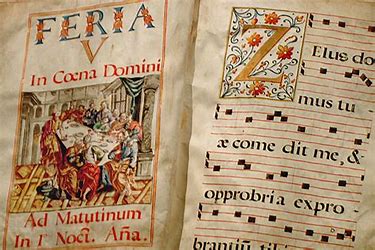 FERIA
V
In Cœna Domini
Ad Matutinum
In I Noct. Aña.
Zelus do
mus tu
æ come dit me, &
opprobria expro
brantiũ